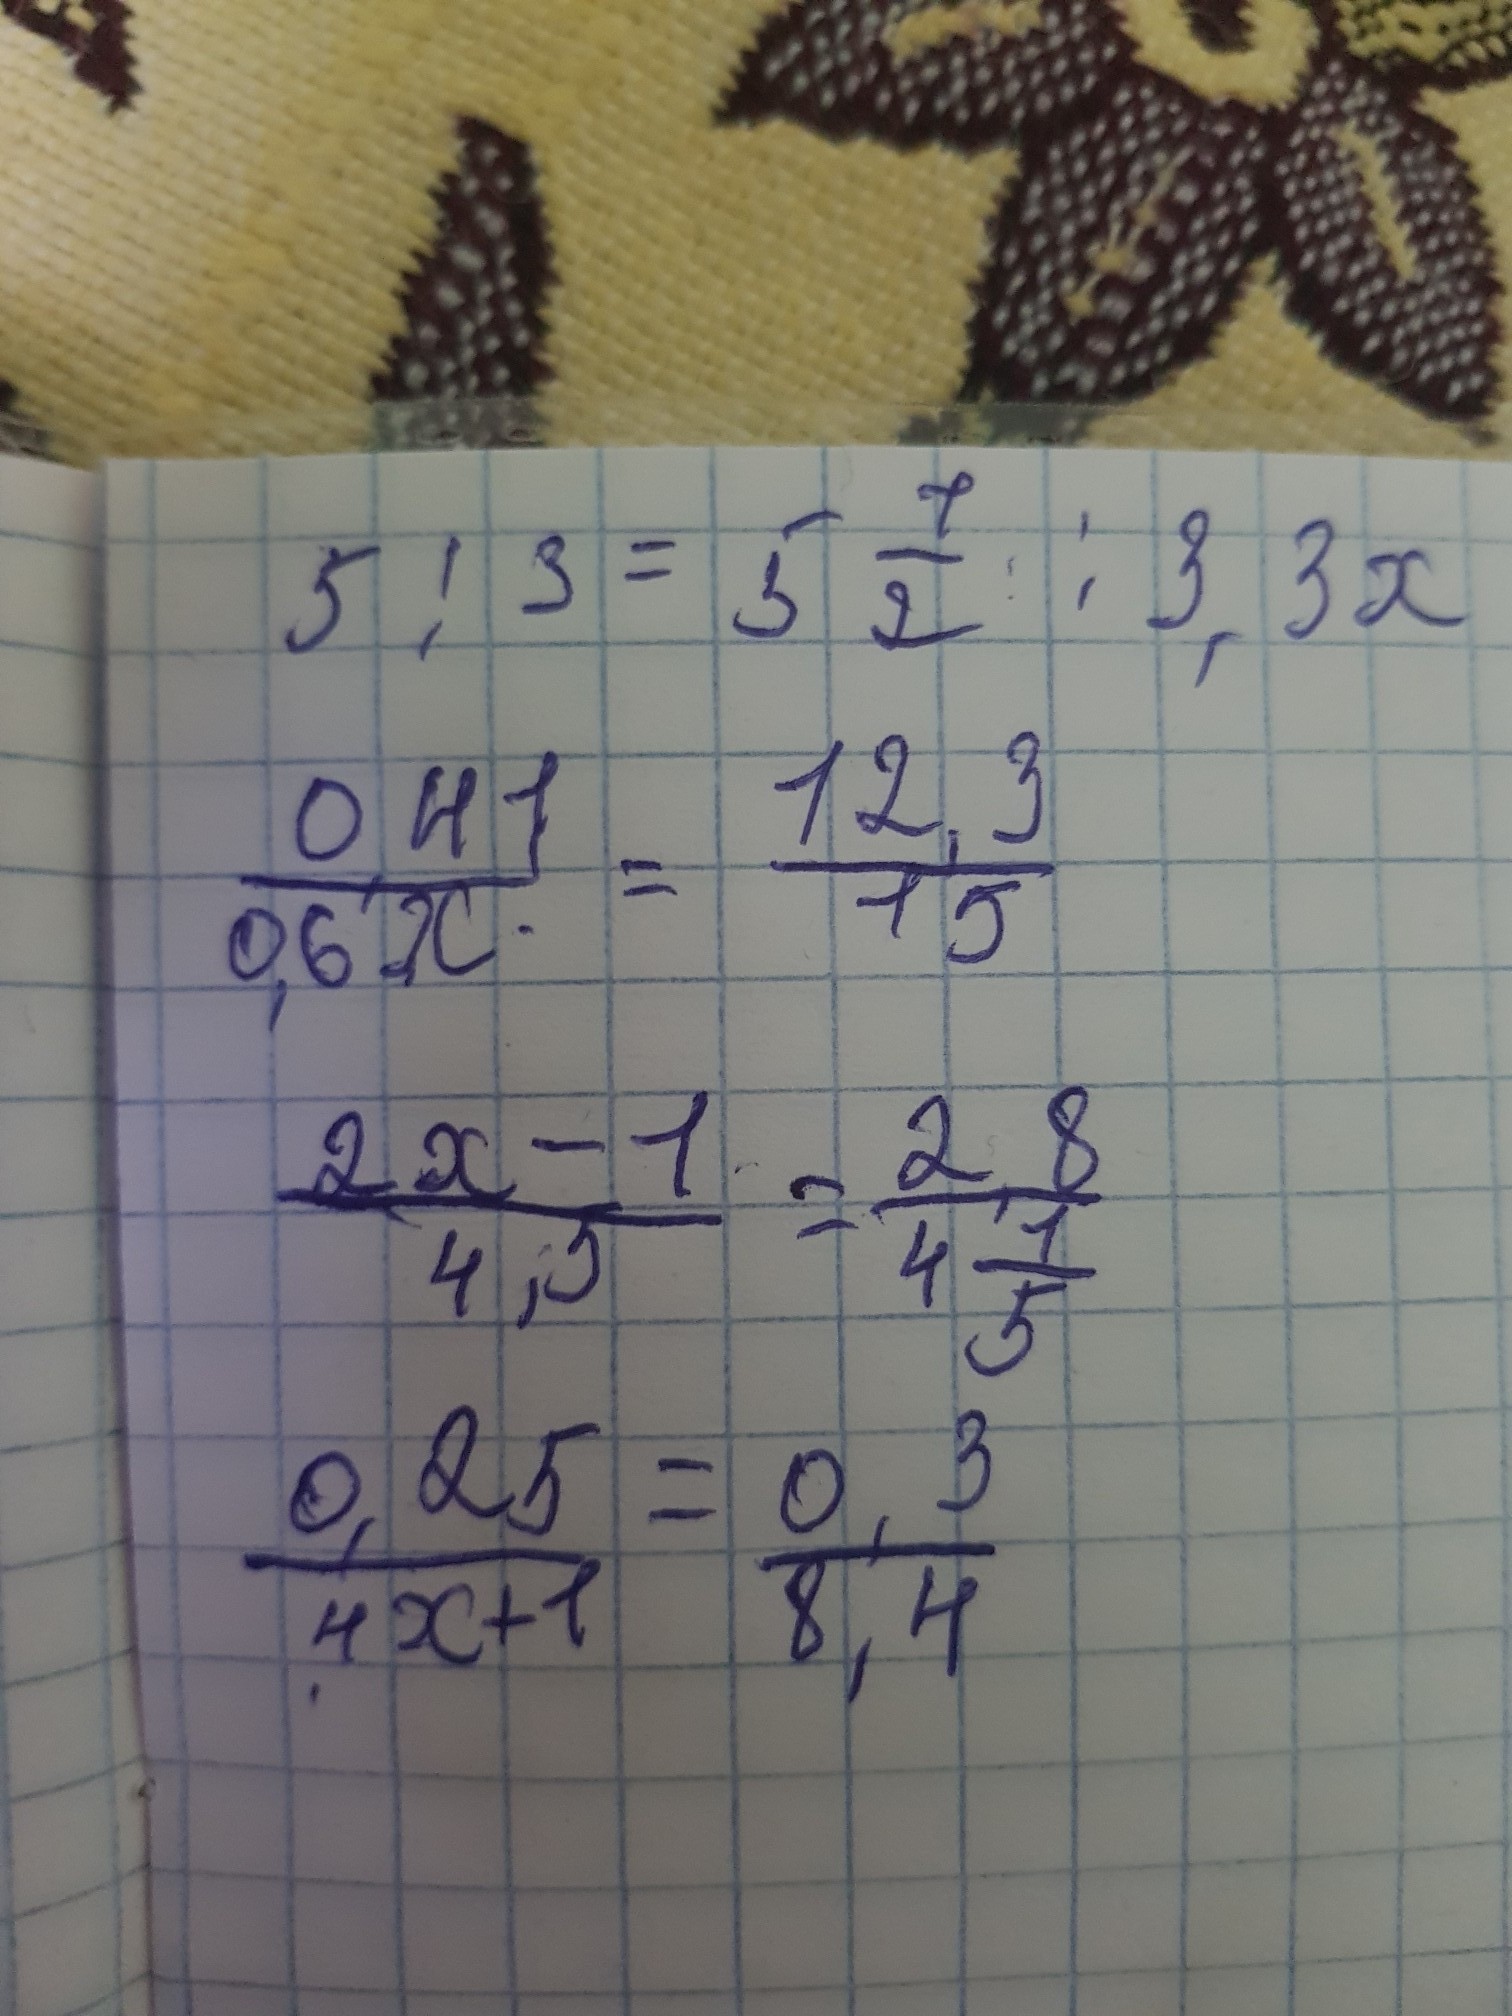 5 : 3 = 5 1/2 : 3,3x
0,41/0,6x = 12,3/15
2x-1/4,5 = 2,8/4 1/5
0,25/4x+1 = 0,3/8,4